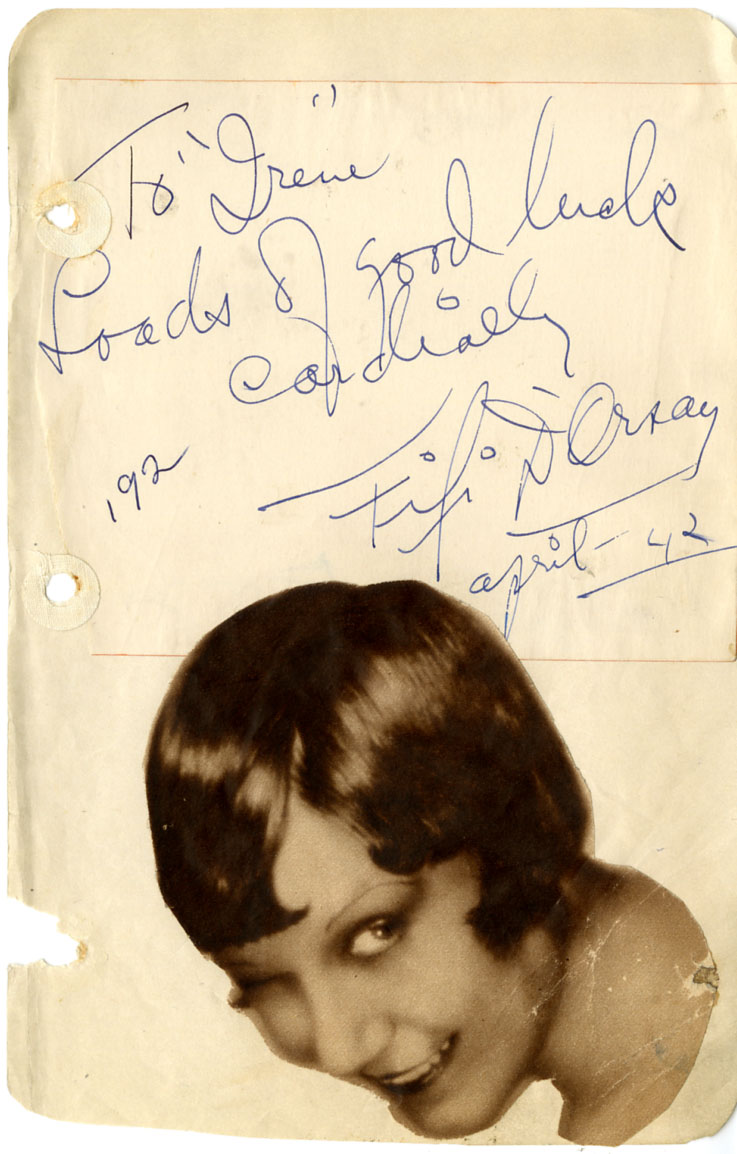 To "Irene"
Loads of good luck
cordially
Fifi D'Orsay
april - 42
192